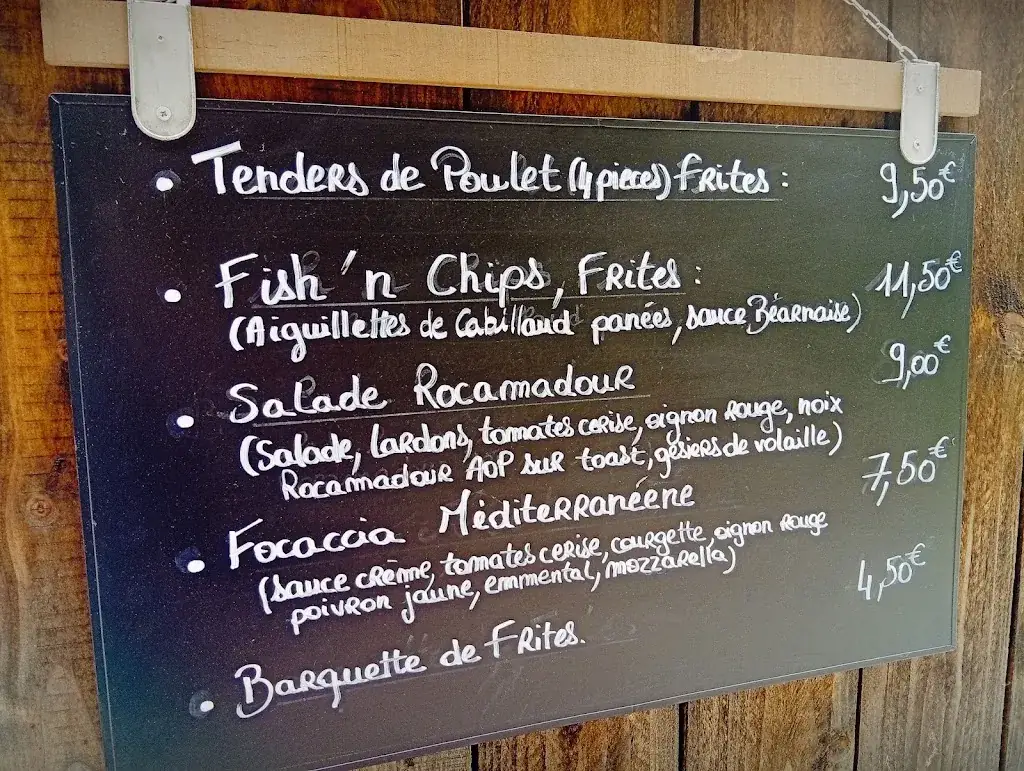 • Tenders de Poulet (4 pieces) Frites : 9,50€
• Fish 'n Chips, Frites : 11,50€
(Aiguillettes de Cabillaud panées, sauce Béarnaise)
• Salade Rocamadour 9,00€
(Salade, lardons, tomates cerise, oignon rouge, noix
Rocamadour AOP sur toast, gésiers de volaille)
• Focaccia Méditerranéene 7,50€
(sauce crème, tomates cerise, courgette, oignon rouge
poivron jaune, emmental, mozzarella)
• Barquette de Frites. 4,50€